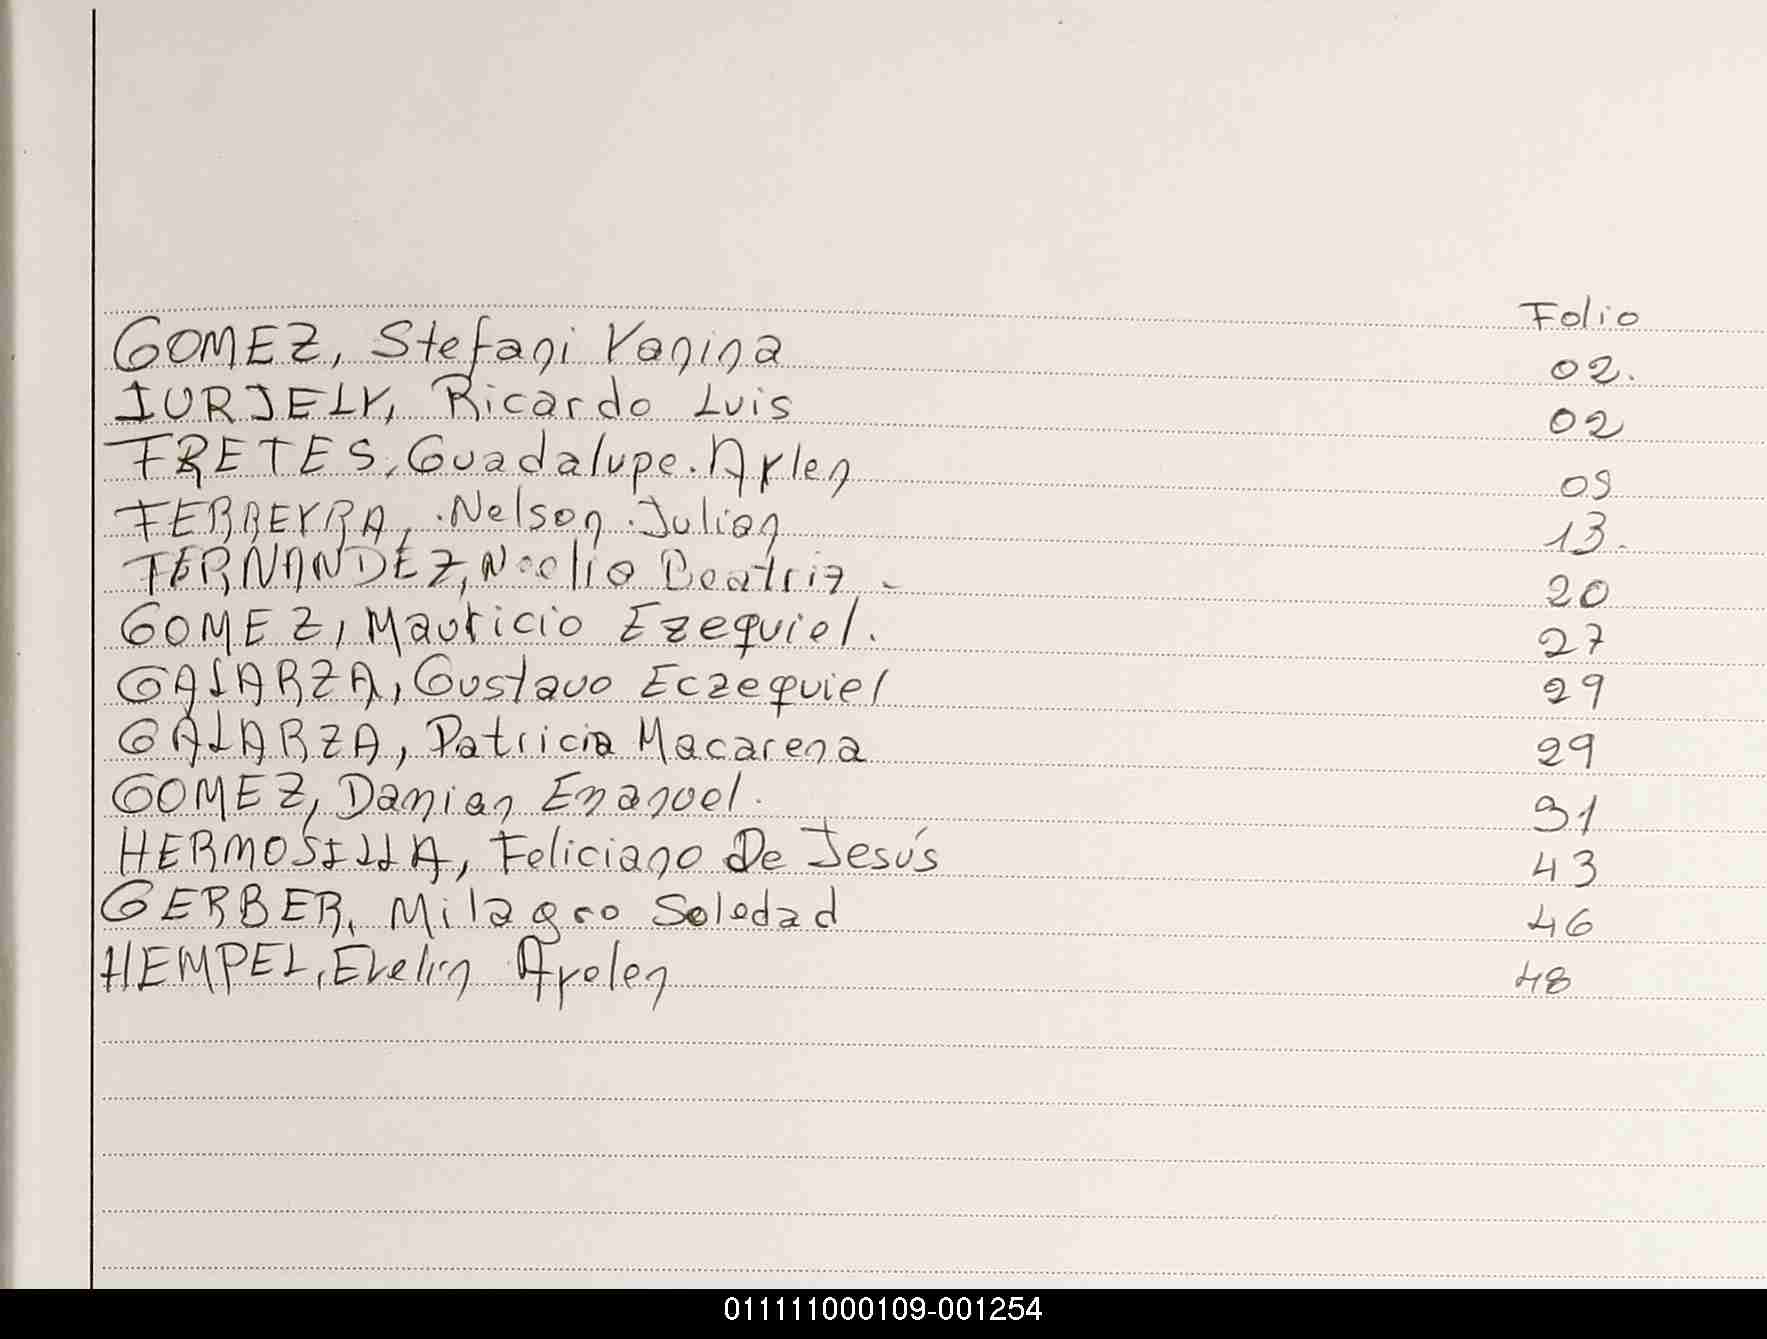 Folio
GOMEZ, Stefani Yanina 02.
IURJELY, Ricardo Luis 02
FRETES, Guadalupe Aylen 09
FERREYRA, Nelson Julian 13.
FERNANDEZ, Noelia Beatriz - 20
GOMEZ, Mauricio Ezequiel. 27
GALARZA, Gustavo Eczequiel 29
GALARZA, Patricia Macarena 29
GOMEZ, Damian Emanuel. 31
HERMOSILLA, Feliciano De Jesús 43
GERBER, Milagro Soledad 46
HEMPEL, Evelin Ayelen 48
011111000109-001254